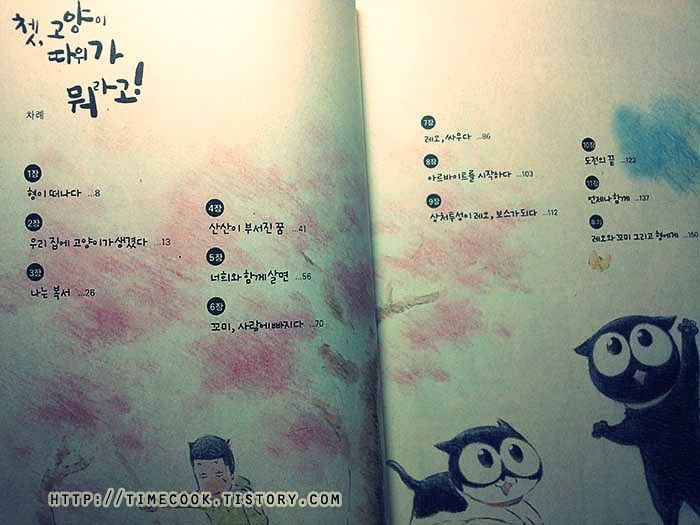 쳇, 고양이
따위가
뭐라고!
차례
1장
형이 떠나다 ...8
2장
우리 집에 고양이가 생겼다 ...13
3장
나는 복서 ...26
4장
산산이 부서진 꿈 ...41
5장
너희와 함께 살면 ...56
6장
꼬미, 사랑에 빠지다 ...70
7장
레오, 싸우다 ...86
8장
아르바이트를 시작하다 ...103
9장
상처투성이 레오, 보스가 되다 ...112
10장
도전의 끝 ...123
11장
언제나 함께 ...137
후기
레오와 꼬미 그리고 형에게 ...150
HTTP://TIMECOOK.TISTORY.COM